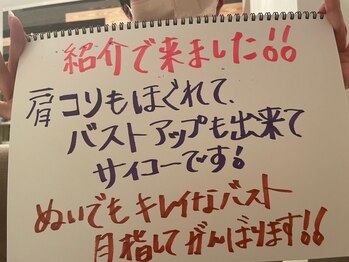 紹介で来ました!!
肩コリもほぐれて、
バストアップも出来て
サイコーです!
ぬいでもキレイなバスト
目指してがんばります!!